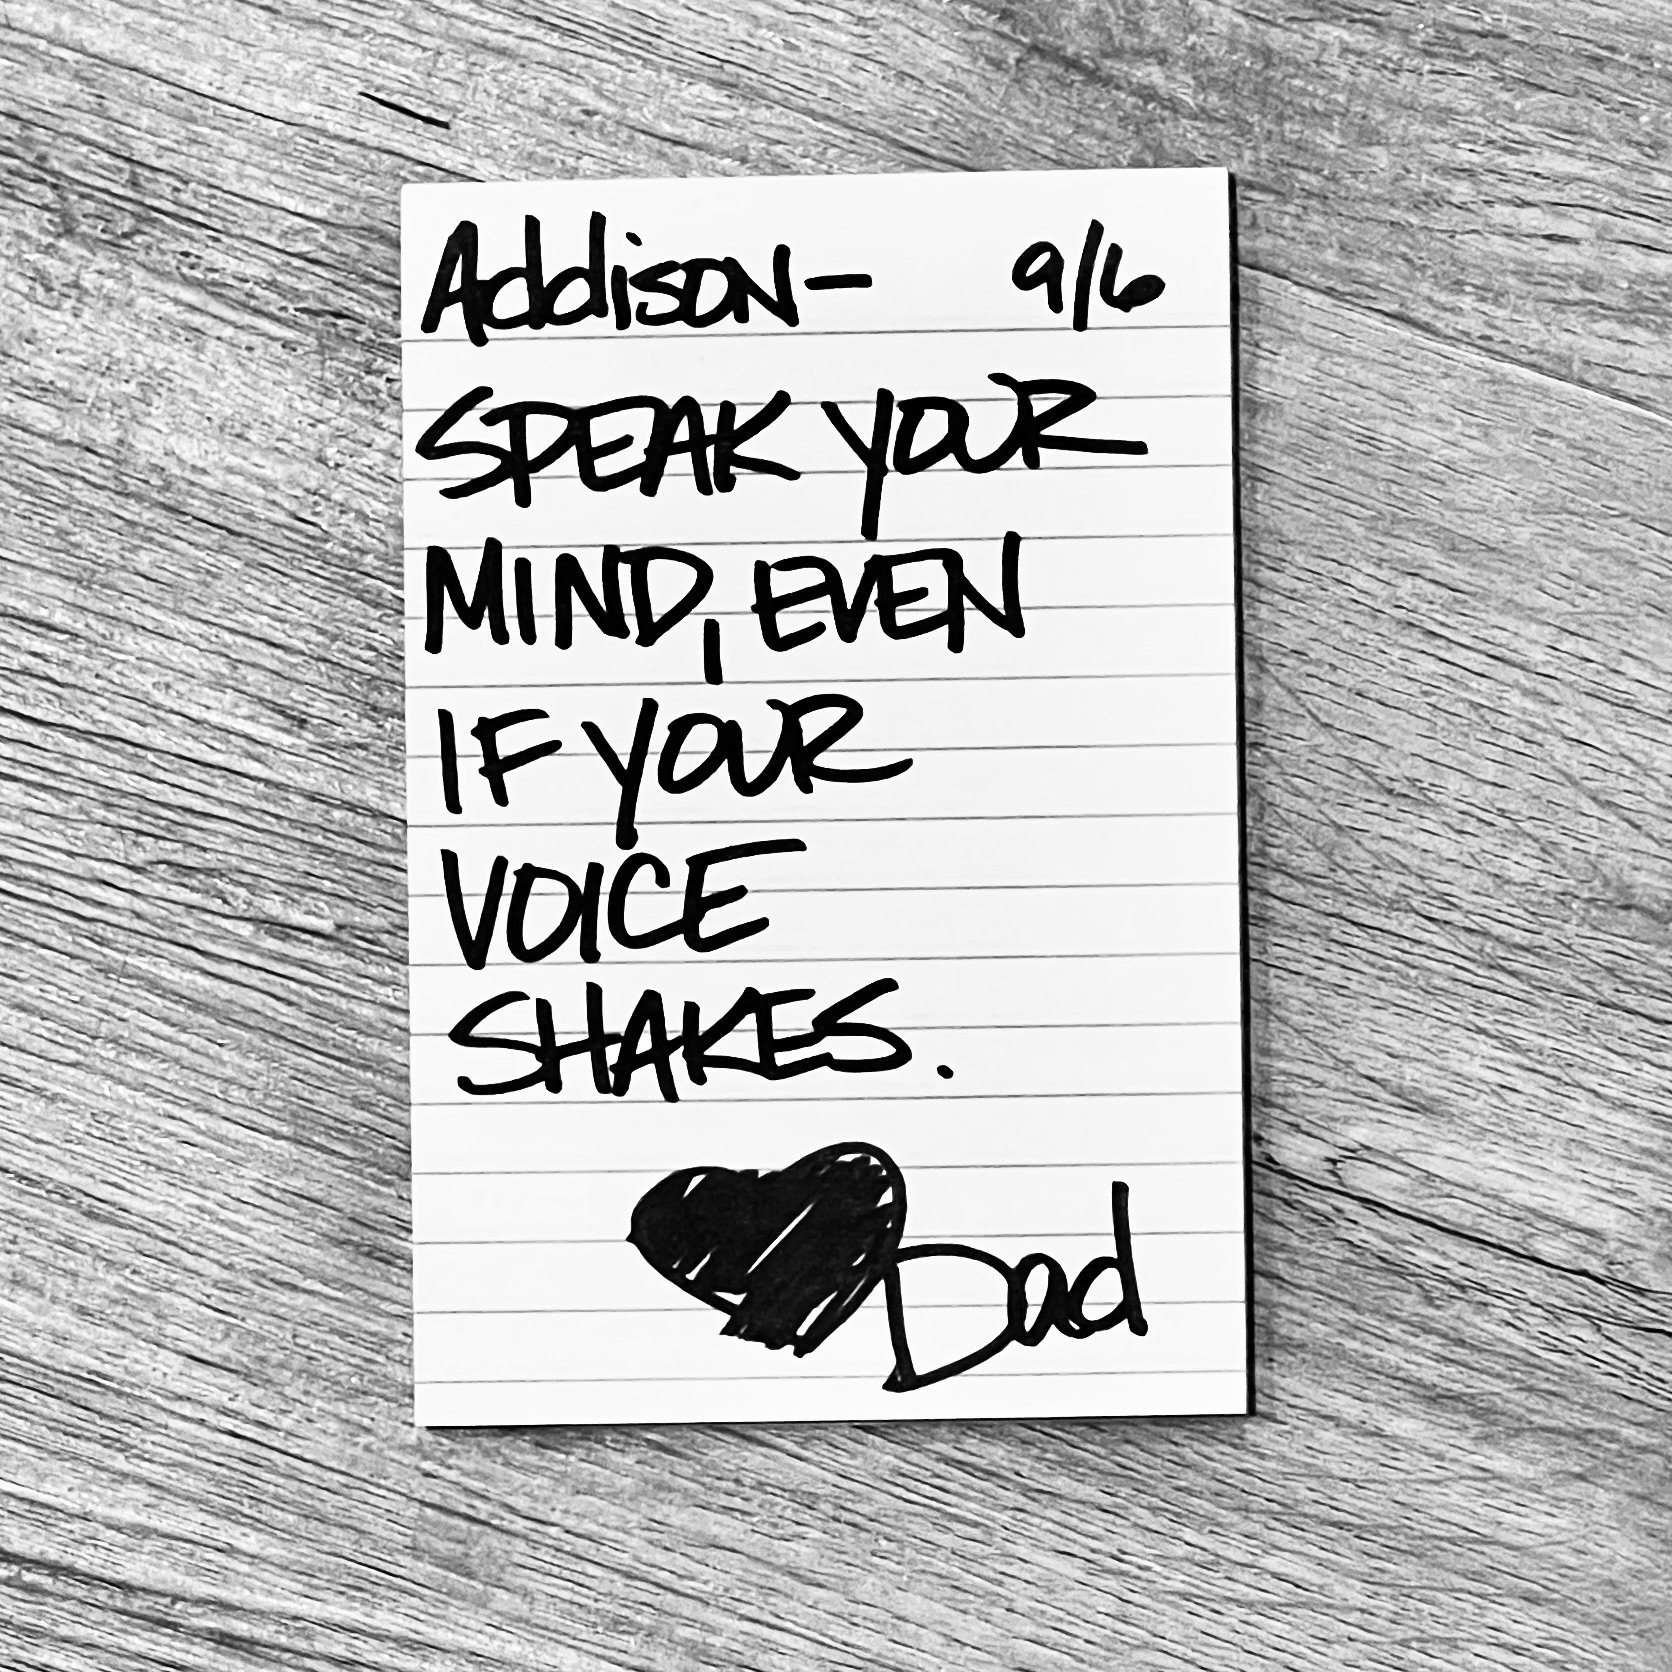 Addison- 9/6
SPEAK YOUR
MIND, EVEN
IF YOUR
VOICE
SHAKES.
Dad